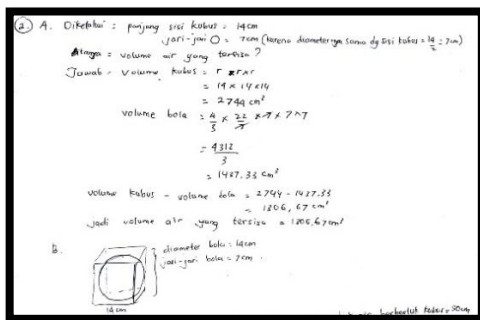 2. A. Diketahui : panjang sisi kubus = 14cm
jari-jari O = 7cm (karena diameternya sama dg sisi kubus = 14/2 = 7cm)
= volume air yang tersisa ?
Jawab = Volume kubus = r x r x r
= 14 x 14 x 14
= 2744 cm³
volume bola = 4/3 x 22/7 x 7 x 7 x 7
= 4312/3
= 1437.33 cm³
volume kubus - volume bola = 2744 - 1437.33
= 1306,67 cm³
Jadi volume air yang tersisa = 1306,67 cm³
B.
diameter bola = 14cm
jari-jari bola = 7cm.
14 cm
berbentuk